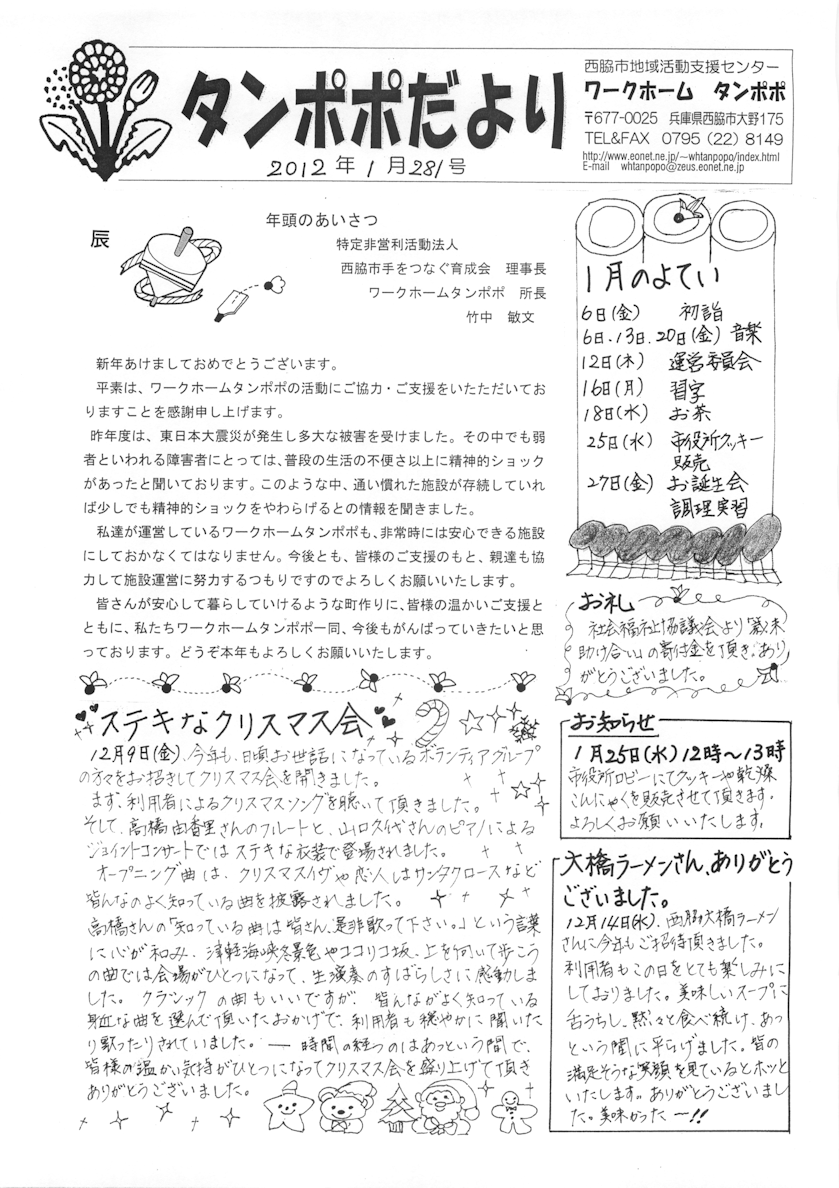 タンポポだより
2012年1月281号
西脇市地域活動支援センター
ワークホーム タンポポ
〒677-0025 兵庫県西脇市大野175
TEL&FAX 0795(22)8149
http://www.eonet.ne.jp/~whtanpopo/index.html
E-mail whtanpopo@zeus.eonet.ne.jp
辰
年頭のあいさつ
特定非営利活動法人
西脇市手をつなぐ育成会 理事長
ワークホームタンポポ 所長
竹中 敏文
新年あけましておめでとうございます。
平素は、ワークホームタンポポの活動にご協力・ご支援をいたただいてお
りますことを感謝申し上げます。
昨年度は、東日本大震災が発生し多大な被害を受けました。その中でも弱
者といわれる障害者にとっては、普段の生活の不便さ以上に精神的ショック
があったと聞いております。このような中、通い慣れた施設が存続していれ
ば少しでも精神的ショックをやわらげるとの情報を聞きました。
私達が運営しているワークホームタンポポも、非常時には安心できる施設
にしておかなくてはなりません。今後とも、皆様のご支援のもと、親達も協
力して施設運営に努力するつもりですのでよろしくお願いいたします。
皆さんが安心して暮らしていけるような町作りに、皆様の温かいご支援と
ともに、私たちワークホームタンポポ一同、今後もがんばっていきたいと思
っております。どうぞ本年もよろしくお願いいたします。
1月のよてい
6日(金) 初詣
6日.13日.20日(金) 音楽
12日(木) 運営委員会
16日(月) 習字
18日(水) お茶
25日(水) 市役所クッキー
販売
27日(金) お誕生会
調理実習
お礼
社会福祉協議会より「歳末
助け合い」の寄付金を頂き、あり
がとうございました。
ステキなクリスマス会
12月9日(金)、今年も、日頃お世話になっているボランティアグループ
の方々をお招きしてクリスマス会を開きました。
まず、利用者によるクリスマスソングを聴いて頂きました。
そして、高橋由香里さんのフルートと、山口久代さんのピアノによる
ジョイントコンサートではステキな衣装で登場されました。
オープニング曲は、クリスマスイヴや恋人はサンタクロースなど
皆んなのよく知っている曲を披露されました。
高橋さんの「知っている曲は皆さん、是非歌って下さい。」という言葉
に心が和み、津軽海峡冬景色やココリコ坂、上を向いて歩こう
の曲では会場がひとつになって、生演奏のすばらしさに感動しま
した。クラシックの曲もいいですが、皆んながよく知っている
身近な曲を選んで頂いたおかげで、利用者も穏やかに聞いた
り歌ったりされていました。― 時間の経つのはあっという間で、
皆様の温かい気持がひとつになってクリスマス会を盛り上げて頂き
ありがとうございました。
お知らせ
1月25日(水) 12時～13時
市役所ロビーにてクッキーや乾燥
こんにゃくを販売させて頂きます。
よろしくお願いいたします。
大橋ラーメンさん、ありがとう
ございました。
12月14日(水)、西脇大橋ラーメン
さんに今年もご招待頂きました。
利用者もこの日をとても楽しみに
しておりました。美味しいスープに
舌うちし、黙々と食べ続け、あっ
という間に平らげました。皆の
満足そうな笑顔を見ているとホッと
いたします。ありがとうございまし
た。美味かったー!!